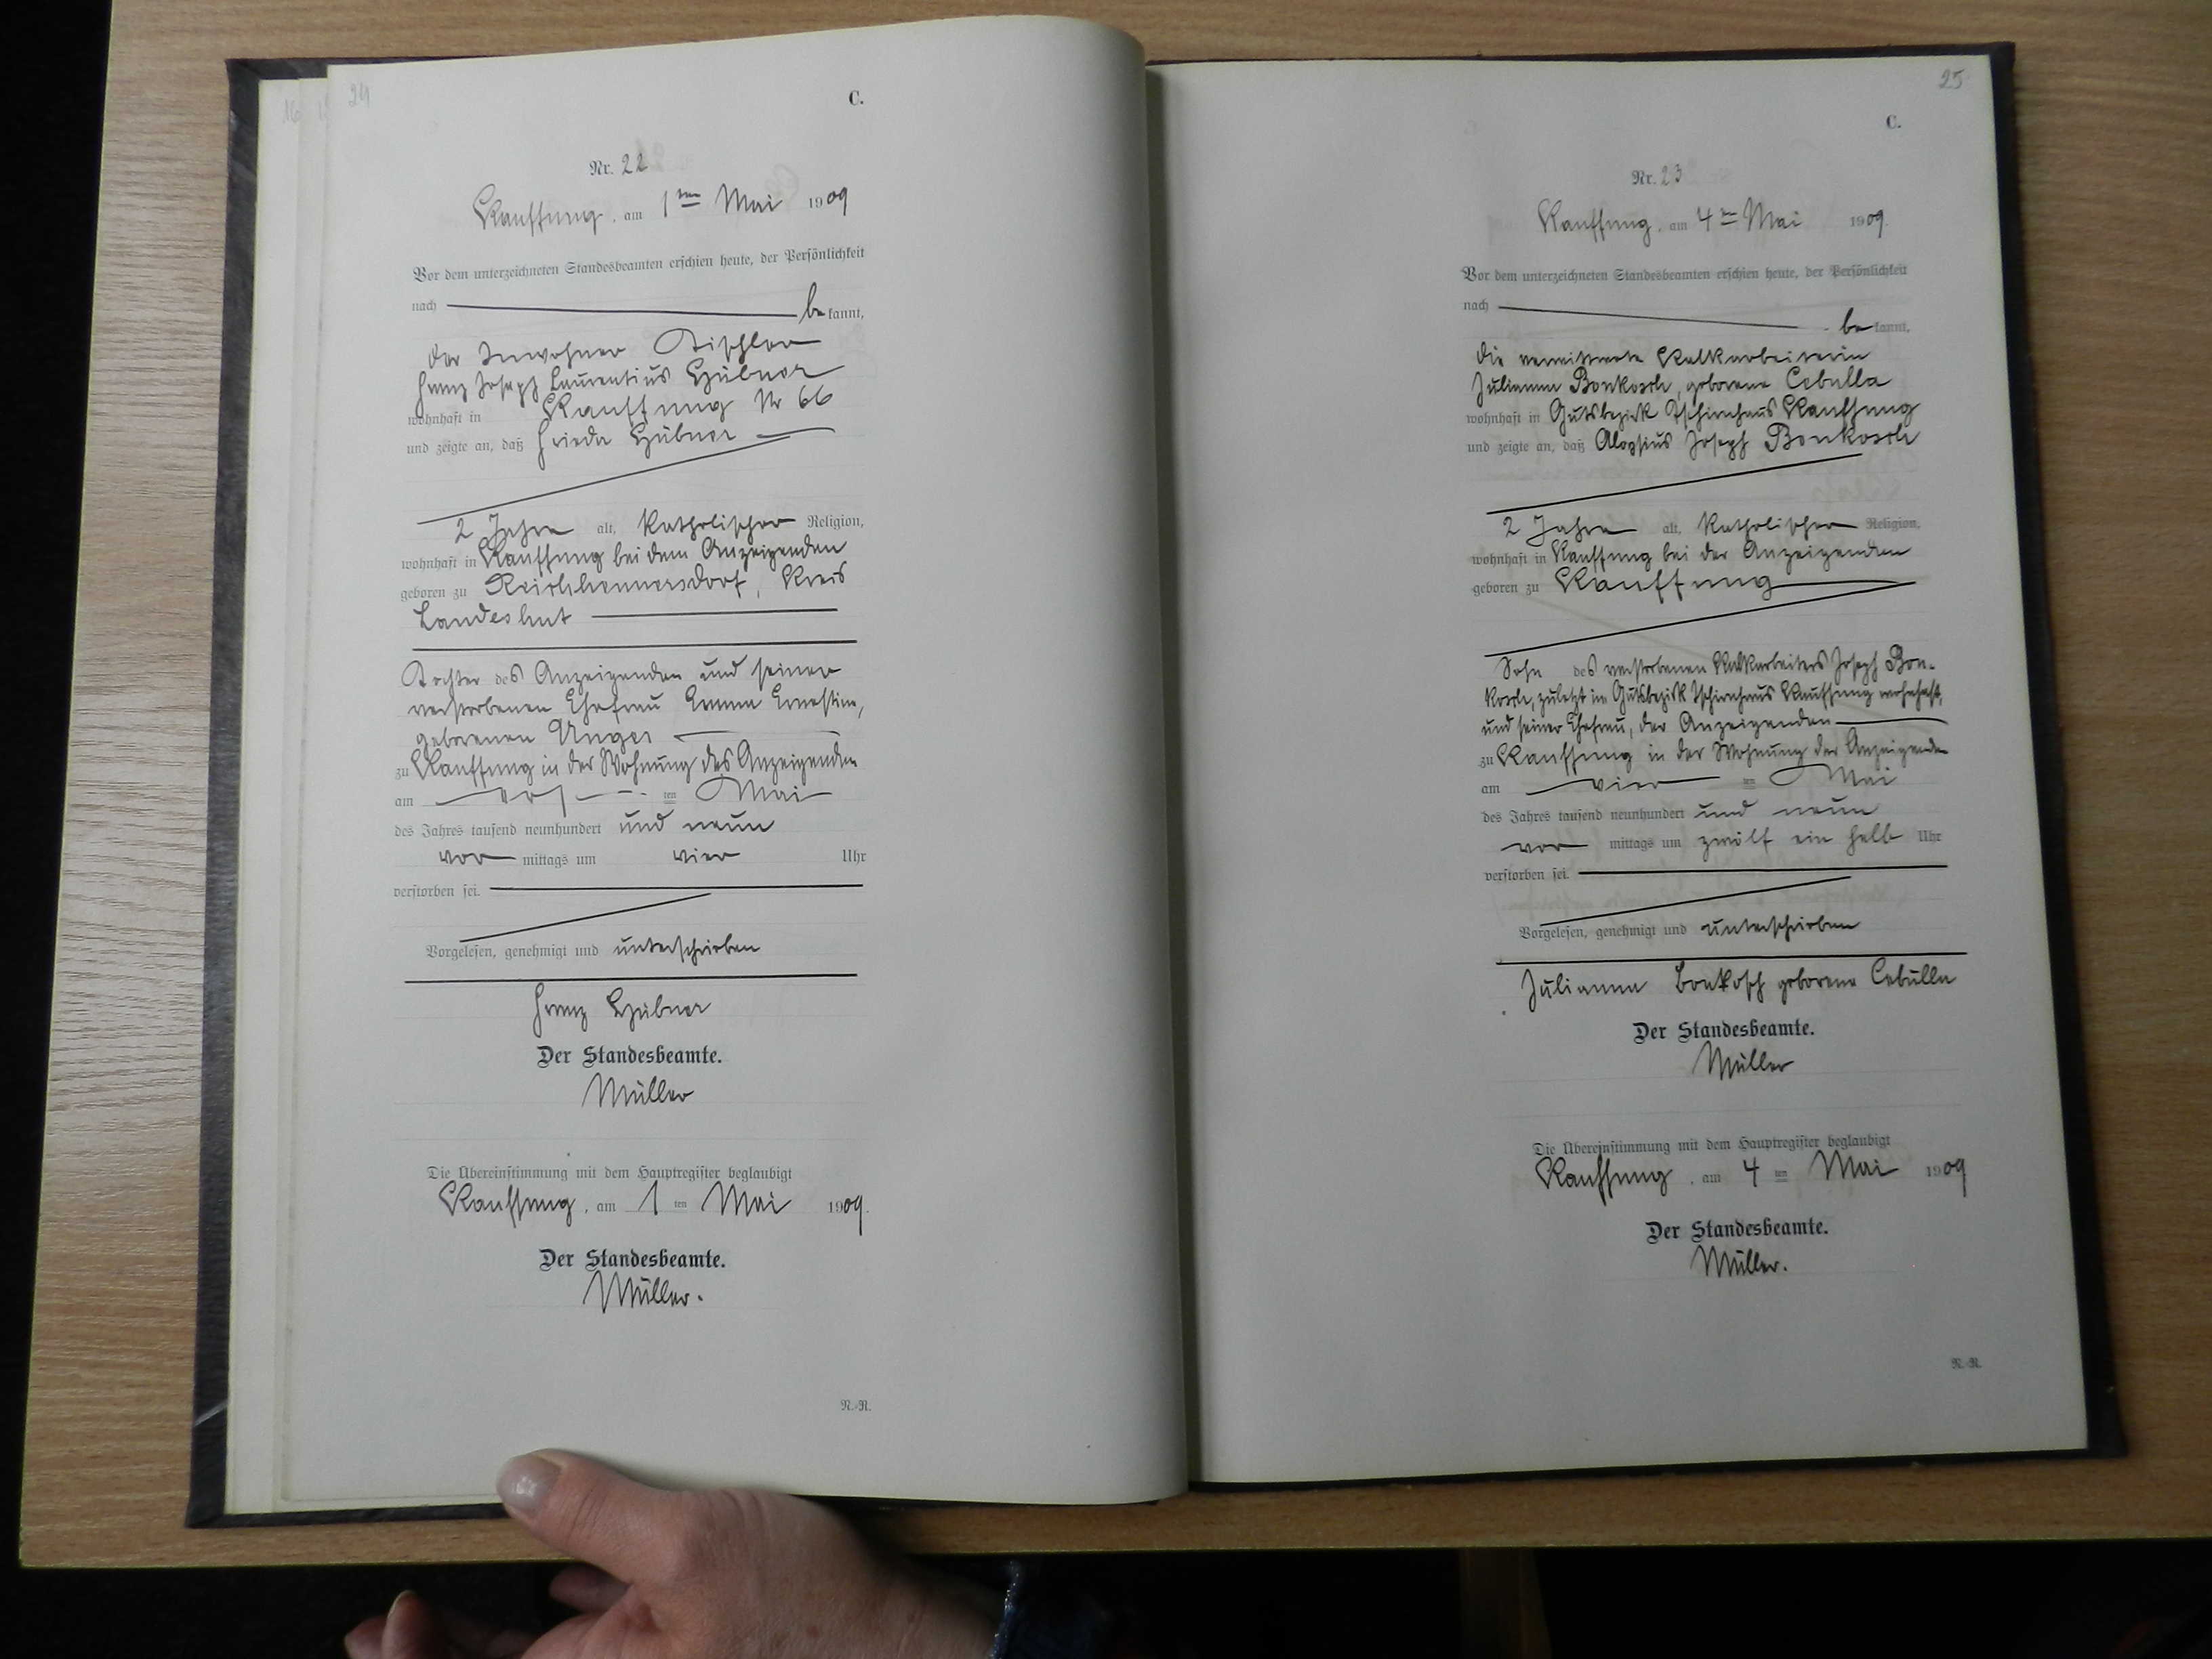 24
C.
Nr. 22
Kauffung, am 1ten Mai 1909
Vor dem unterzeichneten Standesbeamten erschien heute, der Persönlichkeit
nach be kannt,
der Inwohner Tischler
Franz Joseph Laurentius Hübner
wohnhaft in Kauffung Nr 66
und zeigte an, daß Frieda Hübner
2 Jahre alt, katholischer Religion,
wohnhaft in Kauffung bei dem Anzeigenden
geboren zu Reichhennersdorf, Kreis
Landeshut
Tochter des Anzeigenden und seiner
verstorbenen Ehefrau Emma Ernestine,
geborenen Unger
zu Kauffung in der Wohnung des Anzeigenden
am ten Mai
des Jahres tausend neunhundert und neun
vor mittags um vier Uhr
verstorben sei.
Vorgelesen, genehmigt und unterschrieben
Franz Hübner
Der Standesbeamte.
Müller
Die Übereinstimmung mit dem Hauptregister beglaubigt
Kauffung, am 1 ten Mai 1909.
Der Standesbeamte.
Müller.
N.-R.
25
C.
Nr. 23
Kauffung, am 4ten Mai 1909.
Vor dem unterzeichneten Standesbeamten erschien heute, der Persönlichkeit
nach be kannt,
die verwittwete Kalkarbeiterin
Julianna Bonkosch, geborene Cebulla
wohnhaft in Gutsbezirk Tschirnhaus Kauffung
und zeigte an, daß Aloysius Joseph Bonkosch
2 Jahre alt, katholischer Religion,
wohnhaft in Kauffung bei der Anzeigenden
geboren zu Kauffung
Sohn des verstorbenen Kalkarbeiters Joseph Bon-
kosch, zuletzt in Gutsbezirk Tschirnhaus Kauffung wohnhaft,
und seiner Ehefrau, der Anzeigenden
zu Kauffung in der Wohnung der Anzeigenden
am vier ten Mai
des Jahres tausend neunhundert und neun
vor mittags um zwölf ein halb Uhr
verstorben sei.
Vorgelesen, genehmigt und unterschrieben
Julianna Bonkosch geborene Cebulla
Der Standesbeamte.
Müller
Die Übereinstimmung mit dem Hauptregister beglaubigt
Kauffung, am 4 ten Mai 1909
Der Standesbeamte.
Müller.
N.-R.